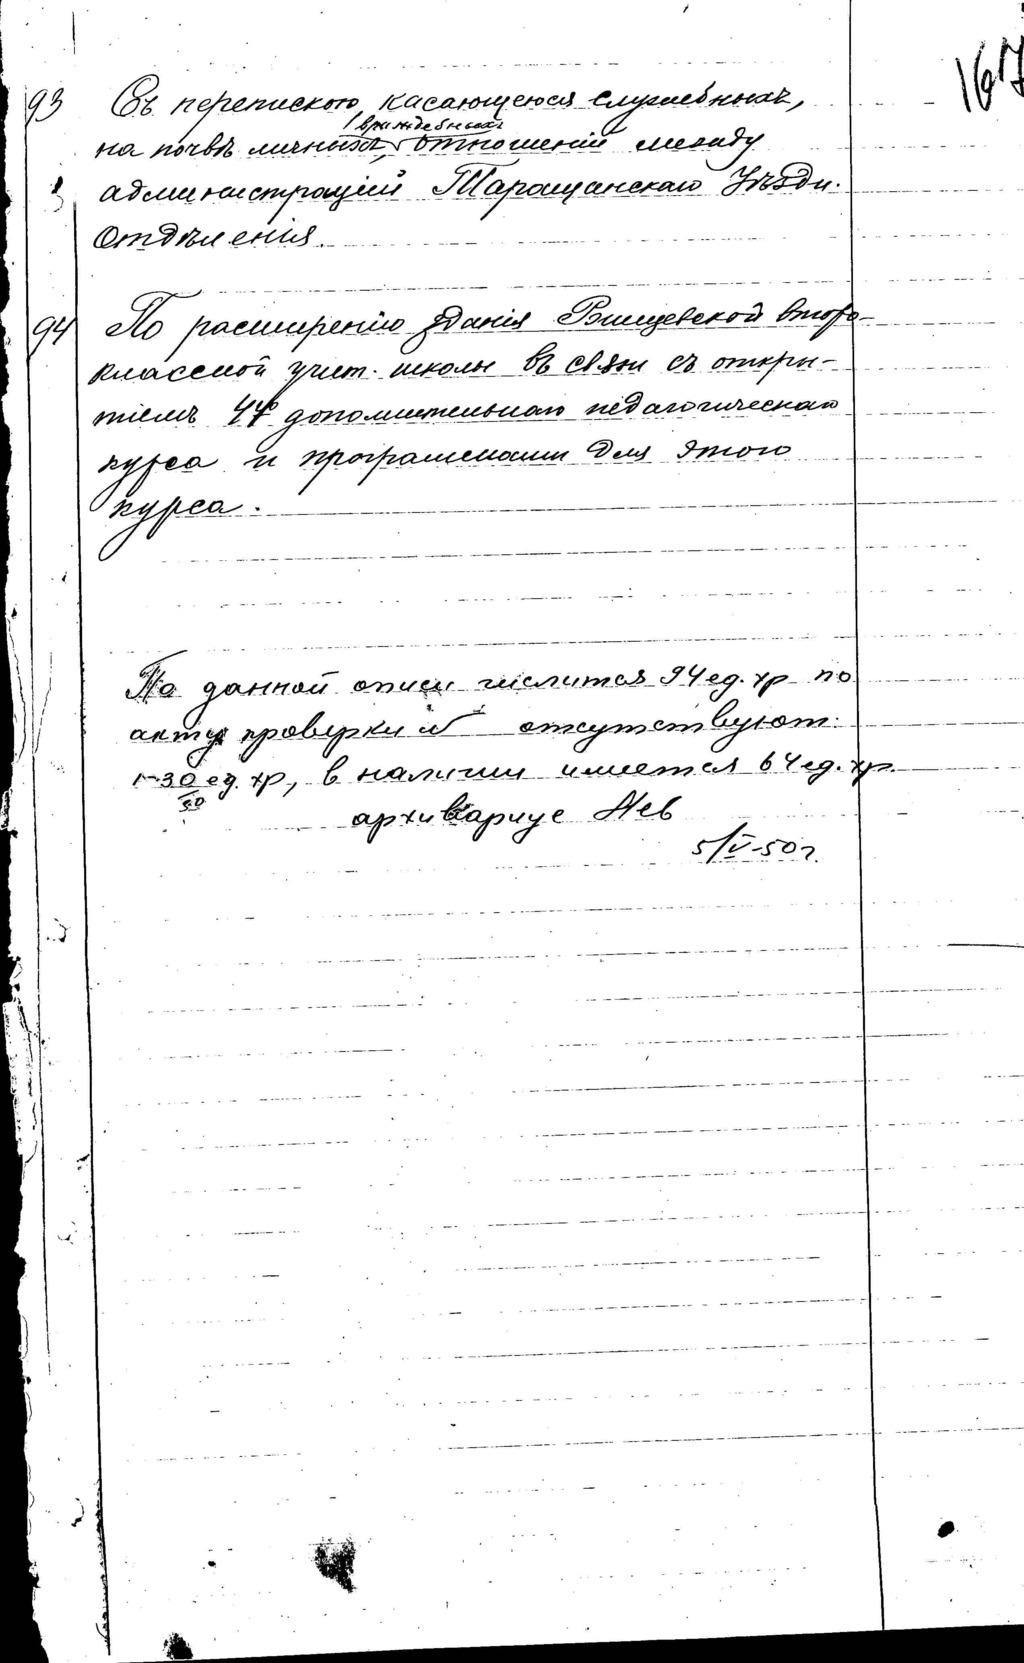 167
93 Съ перепискою, касающеюся служебныхъ,
враждебныхъ
на почвѣ личныхъ, отношеній между
администраціей Таращанскаго Уѣздн.
Отдѣленія.
94 По расширенію зданія Ржищевской второ-
классной учит. школы въ связи съ откры-
тіемъ 4го дополнительнаго педагогическаго
курса и программами для этого
курса.
По данной описи числится 94 ед. хр по
акту проверки отсутствуют:
30 ед. хр, в наличии имеется 64 ед. хр.
архивариус
5/V-50 г.